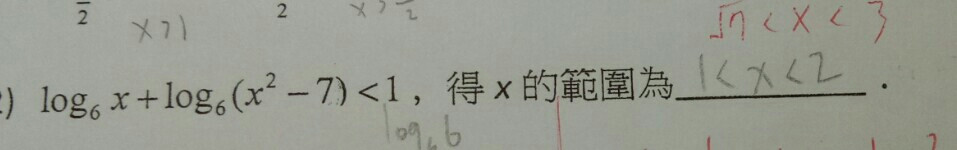 2 x>1 2 x>
√7<x<3
) log₆ x+log₆(x²−7)<1，得 x 的範圍為 1<x<2 .
log₆6